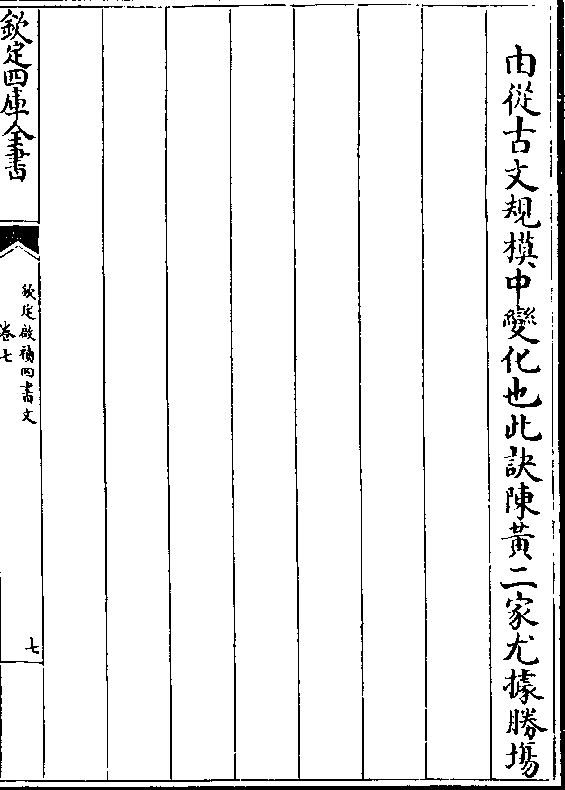 由從古文規模中變化也此訣陳黃二家尤據勝塲
欽定四庫全書
欽定啟禎四書文
卷七
七